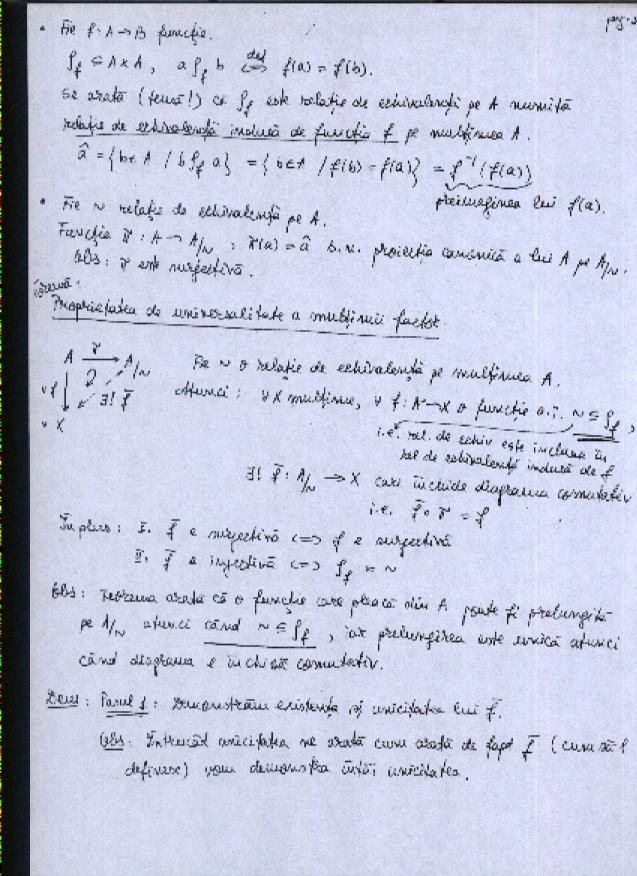 • Fie f: A → B funcție.
ρ_f ⊆ A×A, a ρ_f b ⟺(def) f(a) = f(b).
Se arată (temă!) că ρ_f este relație de echivalență pe A numită
relație de echivalență indusă de funcția f pe mulțimea A.
â = {b∈A / b ρ_f a} = {b∈A / f(b) = f(a)} = f⁻¹(f(a))
preimaginea lui f(a).
• Fie ~ relație de echivalență pe A.
Funcția π: A → A/~ ; π(a) = â s.n. proiecția canonică a lui A pe A/~.
Obs: π este surjectivă.
Teoremă:
Proprietatea de universalitate a mulțimii factor.
A π→ A/~
Fie ~ o relație de echivalență pe mulțimea A.
∀f ↓ ∃! f̄
Atunci: ∀ X mulțime, ∀ f: A → X o funcție a.î. ~ ⊆ ρ_f,
∀ X
i.e. rel. de echiv este inclusă în
rel de echivalență indusă de f
∃! f̄: A/~ → X care închide diagrama comutativ
i.e. f̄ ∘ π = f
În plus: I. f̄ e surjectivă ⟺ f e surjectivă
II. f̄ e injectivă ⟺ ρ_f = ~
Obs: Teorema arată că o funcție care pleacă din A poate fi prelungită
pe A/~ atunci când ~ ⊆ ρ_f, iar prelungirea este unică atunci
când diagrama e închisă comutativ.
Dem: Pasul 1: Demonstrăm existența și unicitatea lui f̄.
Obs: Întrucât unicitatea ne arată cum arată de fapt f̄ (cum să-l
definesc) vom demonstra întâi unicitatea.